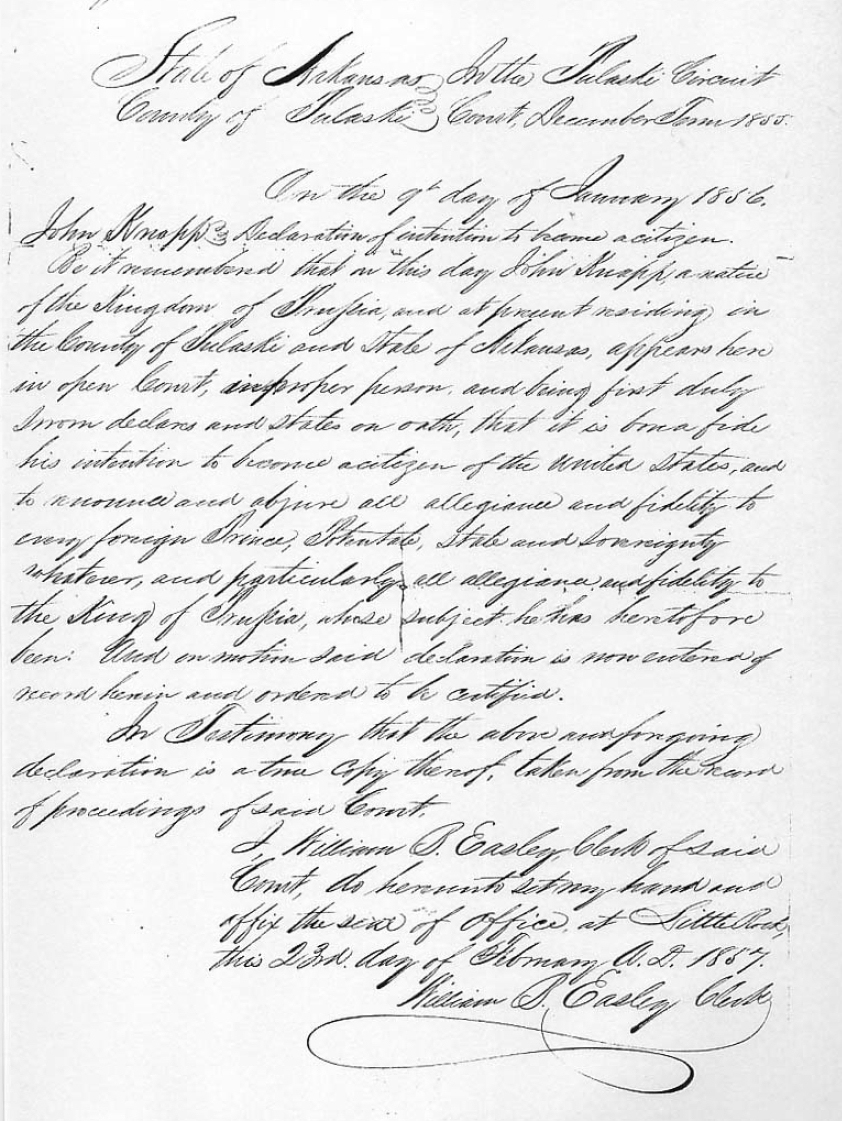 State of Arkansas } In the Pulaski Circuit
County of Pulaski } Court, December Term 1855.
On the 9th day of January 1856.
John Knapp } Declaration of intention to become a citizen.
Be it remembered that on this day John Knapp, a native
of the Kingdom of Prussia, and at present residing in
the County of Pulaski and State of Arkansas, appears here
in open Court, in proper person, and being first duly
sworn declares and states on oath, that it is bona fide
his intention to become a citizen of the United States, and
to renounce and abjure all allegiance and fidelity to
every foreign Prince, Potentate, State and Sovereignty
whatever, and particularly all allegiance and fidelity to
the King of Prussia, whose subject he has heretofore
been: And on motion said declaration is now entered of
record herein and ordered to be certified.
In Testimony that the above and foregoing
declaration is a true copy thereof, taken from the record
of proceedings of said Court.
I, William B. Easley, Clerk of said
Court, do hereunto set my hand and
affix the seal of office, at Little Rock,
this 23rd. day of February A.D. 1857.
William B. Easley Clerk